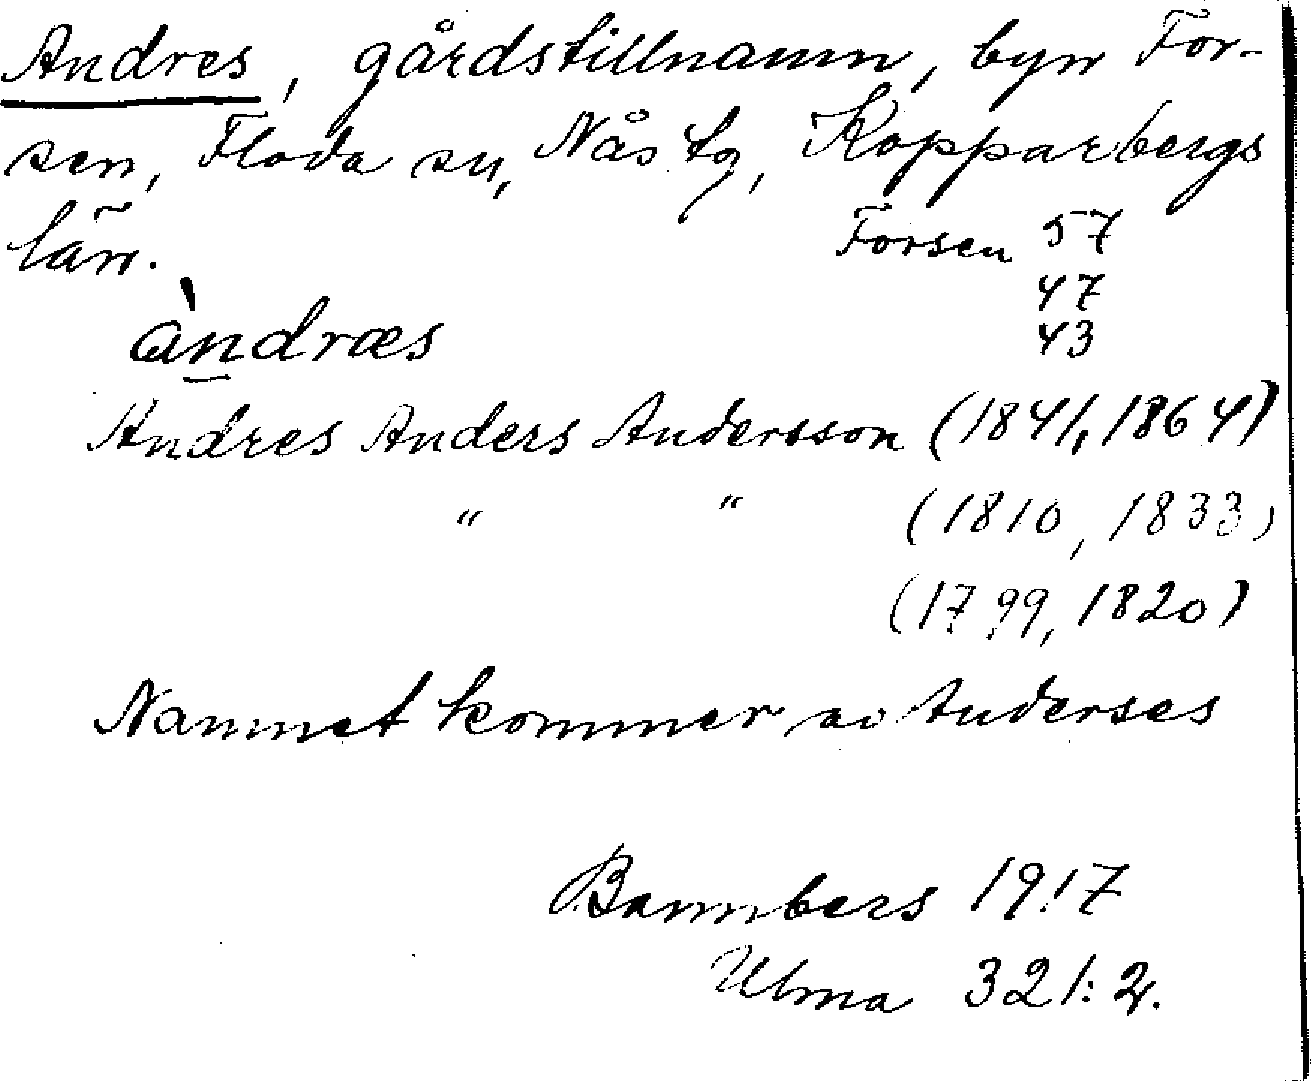 Andres, gårdstillnamn, byn For-
sen, Floda sn, Nås tg, Kopparbergs
län.
Forsen 57
47
43
àndræs
Andres Anders Andersson (1841, 1864)
" " (1810, 1833)
(1799, 1820)
Namnet kommer av Anderses
Bannbers 1917
Ulma 321:2.